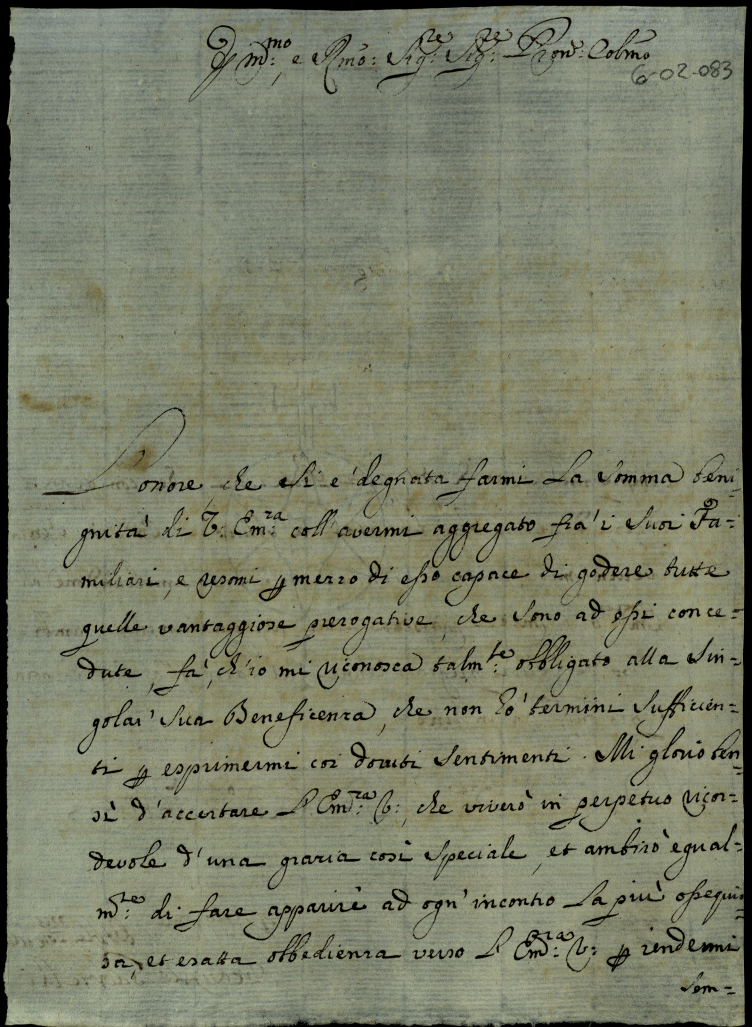 Em:mo, e Rmo: Sig:re Sig:re Pron: Colmo
6-02-083
L'onore che si è degnata farmi la somma beni-
gnità di V: Em:ra coll'avermi aggregato frà i suoi Fa-
miliari, e resomi p mezzo di esso capace di godere tutte
quelle vantaggiose prerogative, che sono ad essi conce-
dute, fà, ch'io mi riconosca talm:te obbligato alla sin-
golar' sua Beneficenza, che non hò termini sufficien-
ti p esprimermi coi dovuti sentimenti. Mi glorio ben-
sì d'accertare l'Em:ra V:, che viverò in perpetuo ricor-
devole d'una grazia così speciale, et ambirò egual-
m:te di fare apparire ad ogn'incontro la più ossequio
sa, et esatta obbedienza verso l'Em:ra V: p rendermi
sem-